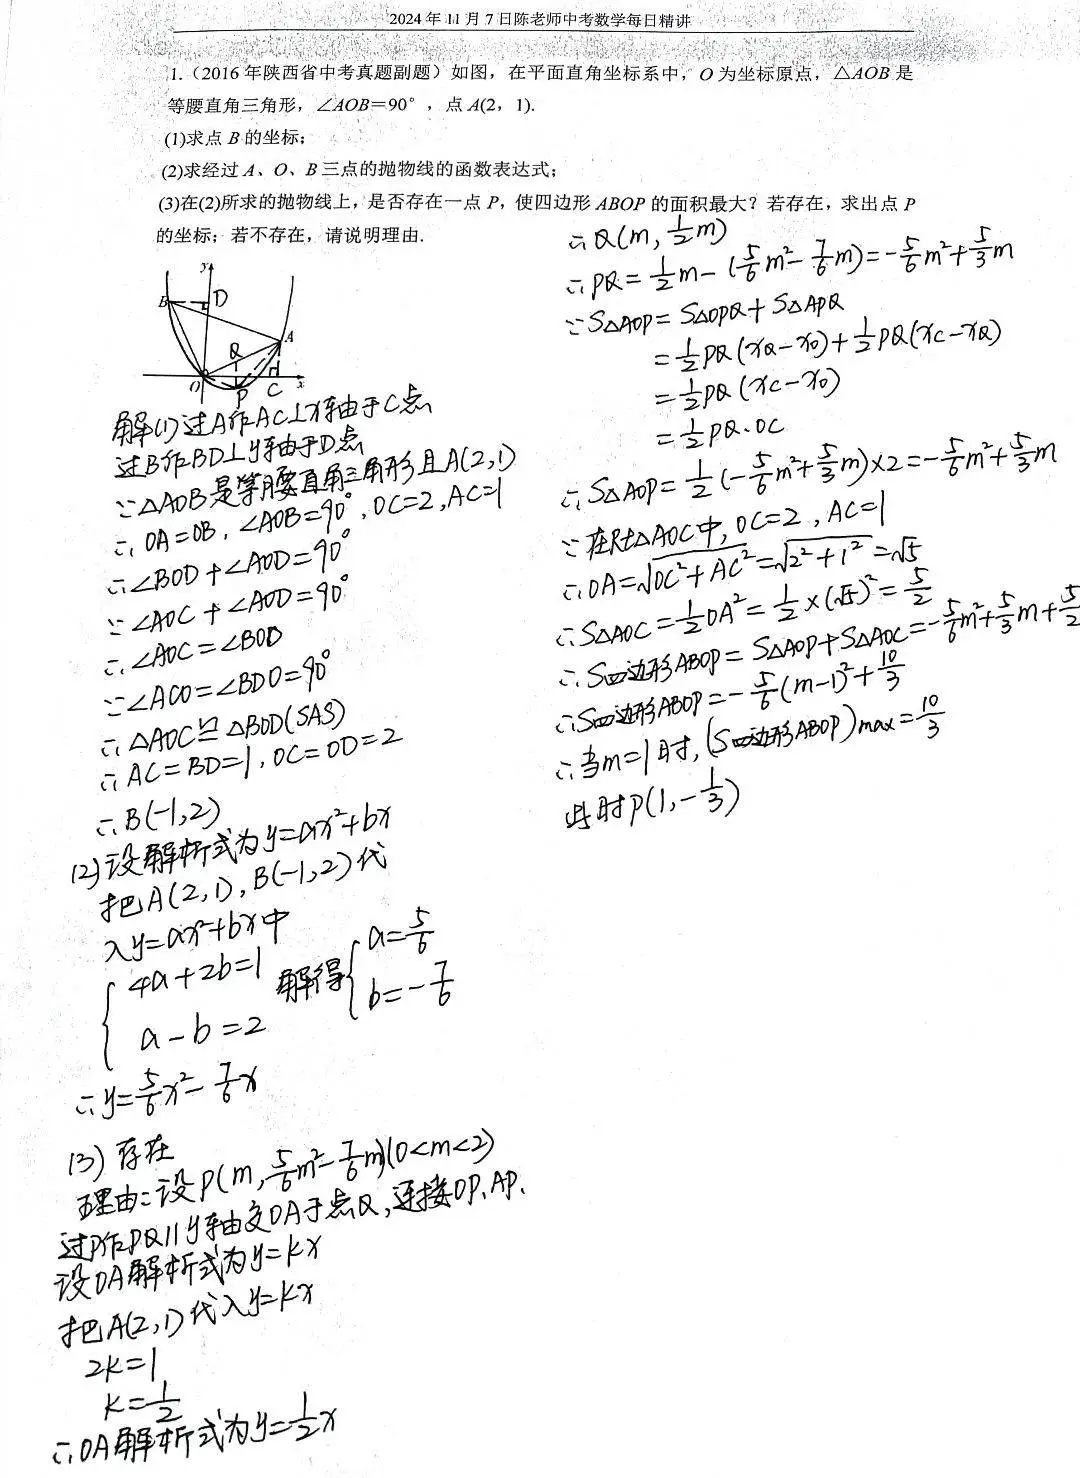 2024年11月7日陈老师中考数学每日精讲
1.（2016年陕西省中考真题副题）如图，在平面直角坐标系中，O为坐标原点，△AOB是
等腰直角三角形，∠AOB=90°，点A(2，1).
(1)求点B的坐标；
(2)求经过A、O、B三点的抛物线的函数表达式；
(3)在(2)所求的抛物线上，是否存在一点P，使四边形ABOP的面积最大？若存在，求出点P
的坐标；若不存在，请说明理由.
y
B
D
A
Q
O
P
C
x
解(1)过A作AC⊥x轴于C点
过B作BD⊥y轴于D点
∵△AOB是等腰直角三角形且A(2,1)
∴OA=OB,∠AOB=90°,OC=2,AC=1
∴∠BOD+∠AOD=90°
∵∠AOC+∠AOD=90°
∴∠AOC=∠BOD
∵∠ACO=∠BDO=90°
∴△AOC≌△BOD(SAS)
∴AC=BD=1,OC=OD=2
∴B(-1,2)
(2)设解析式为y=ax²+bx
把A(2,1),B(-1,2)代
入y=ax²+bx中
{4a+2b=1 a-b=2 解得{a=5/6 b=-7/6
∴y=5/6x²-7/6x
(3)存在
理由:设P(m,5/6m²-7/6m)(0<m<2)
过P作PQ∥y轴交OA于点Q,连接OP、AP.
设OA解析式为y=kx
把A(2,1)代入y=kx
2k=1
k=1/2
∴OA解析式为y=1/2x
∴Q(m,1/2m)
∴PQ=1/2m-(5/6m²-7/6m)=-5/6m²+5/3m
∵S△AOP=S△OPQ+S△APQ
=1/2PQ(xQ-xO)+1/2PQ(xC-xQ)
=1/2PQ(xC-xO)
=1/2PQ·OC
∴S△AOP=1/2(-5/6m²+5/3m)×2=-5/6m²+5/3m
∵在Rt△AOC中,OC=2,AC=1
∴OA=√OC²+AC²=√2²+1²=√5
∴S△AOC=1/2OA²=1/2×(√5)²=5/2
∴S四边形ABOP=S△AOP+S△AOC=-5/6m²+5/3m+5/2
∴S四边形ABOP=-5/6(m-1)²+10/3
∴当m=1时,(S四边形ABOP)max=10/3
此时P(1,-1/3)